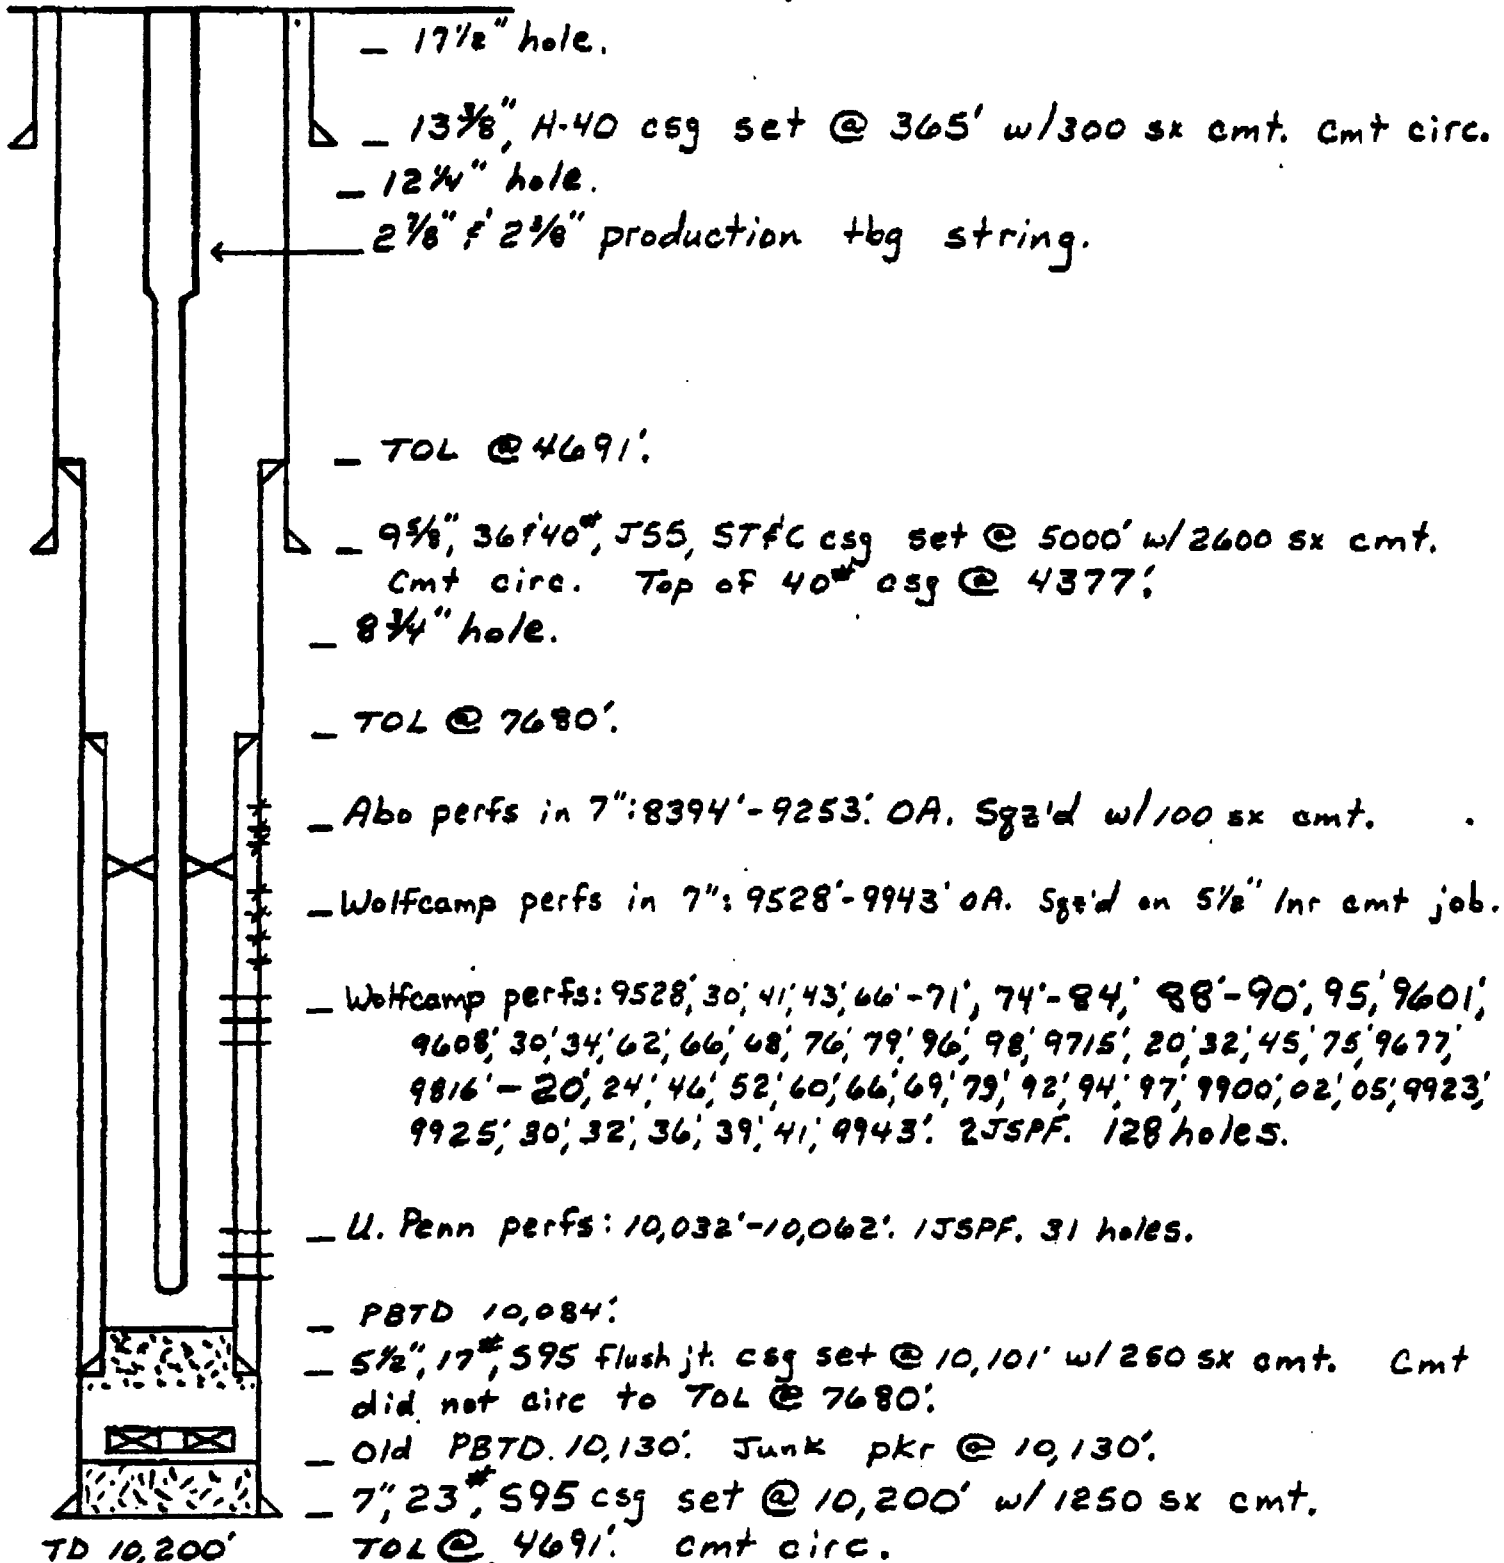 17 1/2" hole.
13 3/8", H-40 csg set @ 365' w/300 sx cmt. Cmt circ.
12 1/4" hole.
2 7/8" & 2 3/8" production tbg string.
TOL @ 4691'.
9 5/8", 36 & 40#, J55, ST&C csg set @ 5000' w/2600 sx cmt.
Cmt circ. Top of 40# csg @ 4377'.
8 3/4" hole.
TOL @ 7680'.
Abo perfs in 7": 8394'-9253'. OA. Sqz'd w/100 sx cmt.
Wolfcamp perfs in 7": 9528'-9943' OA. Sqz'd on 5 1/2" lnr cmt job.
Wolfcamp perfs: 9528', 30', 41', 43', 66'-71', 74'-84', 88'-90', 95', 9601',
9608', 30', 34', 62', 66', 68', 76', 79', 96', 98', 9715', 20', 32', 45', 75', 9677',
9816'-20', 24', 46', 52', 60', 66', 69', 79', 92', 94', 97', 9900', 02', 05', 9923',
9925', 30', 32', 36', 39', 41', 9943'. 2JSPF. 128 holes.
U. Penn perfs: 10,032'-10,062'. 1JSPF. 31 holes.
PBTD 10,084'.
5 1/2", 17#, S95 flush jt. csg set @ 10,101' w/250 sx cmt. Cmt
did not circ to TOL @ 7680'.
Old PBTD. 10,130'. Junk pkr @ 10,130'.
7", 23#, S95 csg set @ 10,200' w/1250 sx cmt.
TD 10,200'
TOL @ 4691'. Cmt circ.